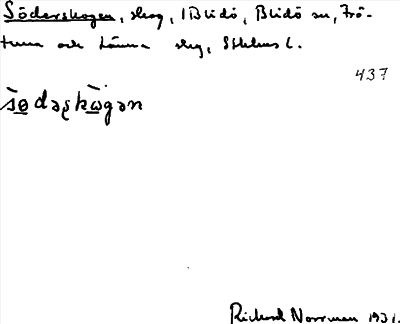 Söderskogen, skog, 1 Blidö, Blidö sn, Frö-
tuna och Länna skg, Sthlms l.
437
Richard Norrman 1931.